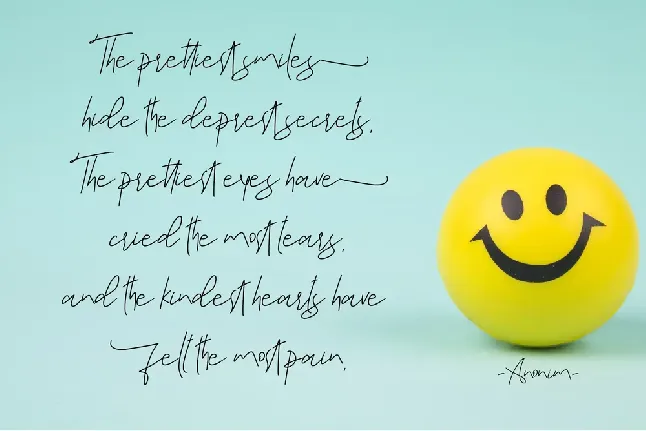 The prettiest smiles
hide the deprest secrets.
The prettiest eyes have
cried the most tears.
and the kindest hearts have
Felt the most pain.
-Anonim-